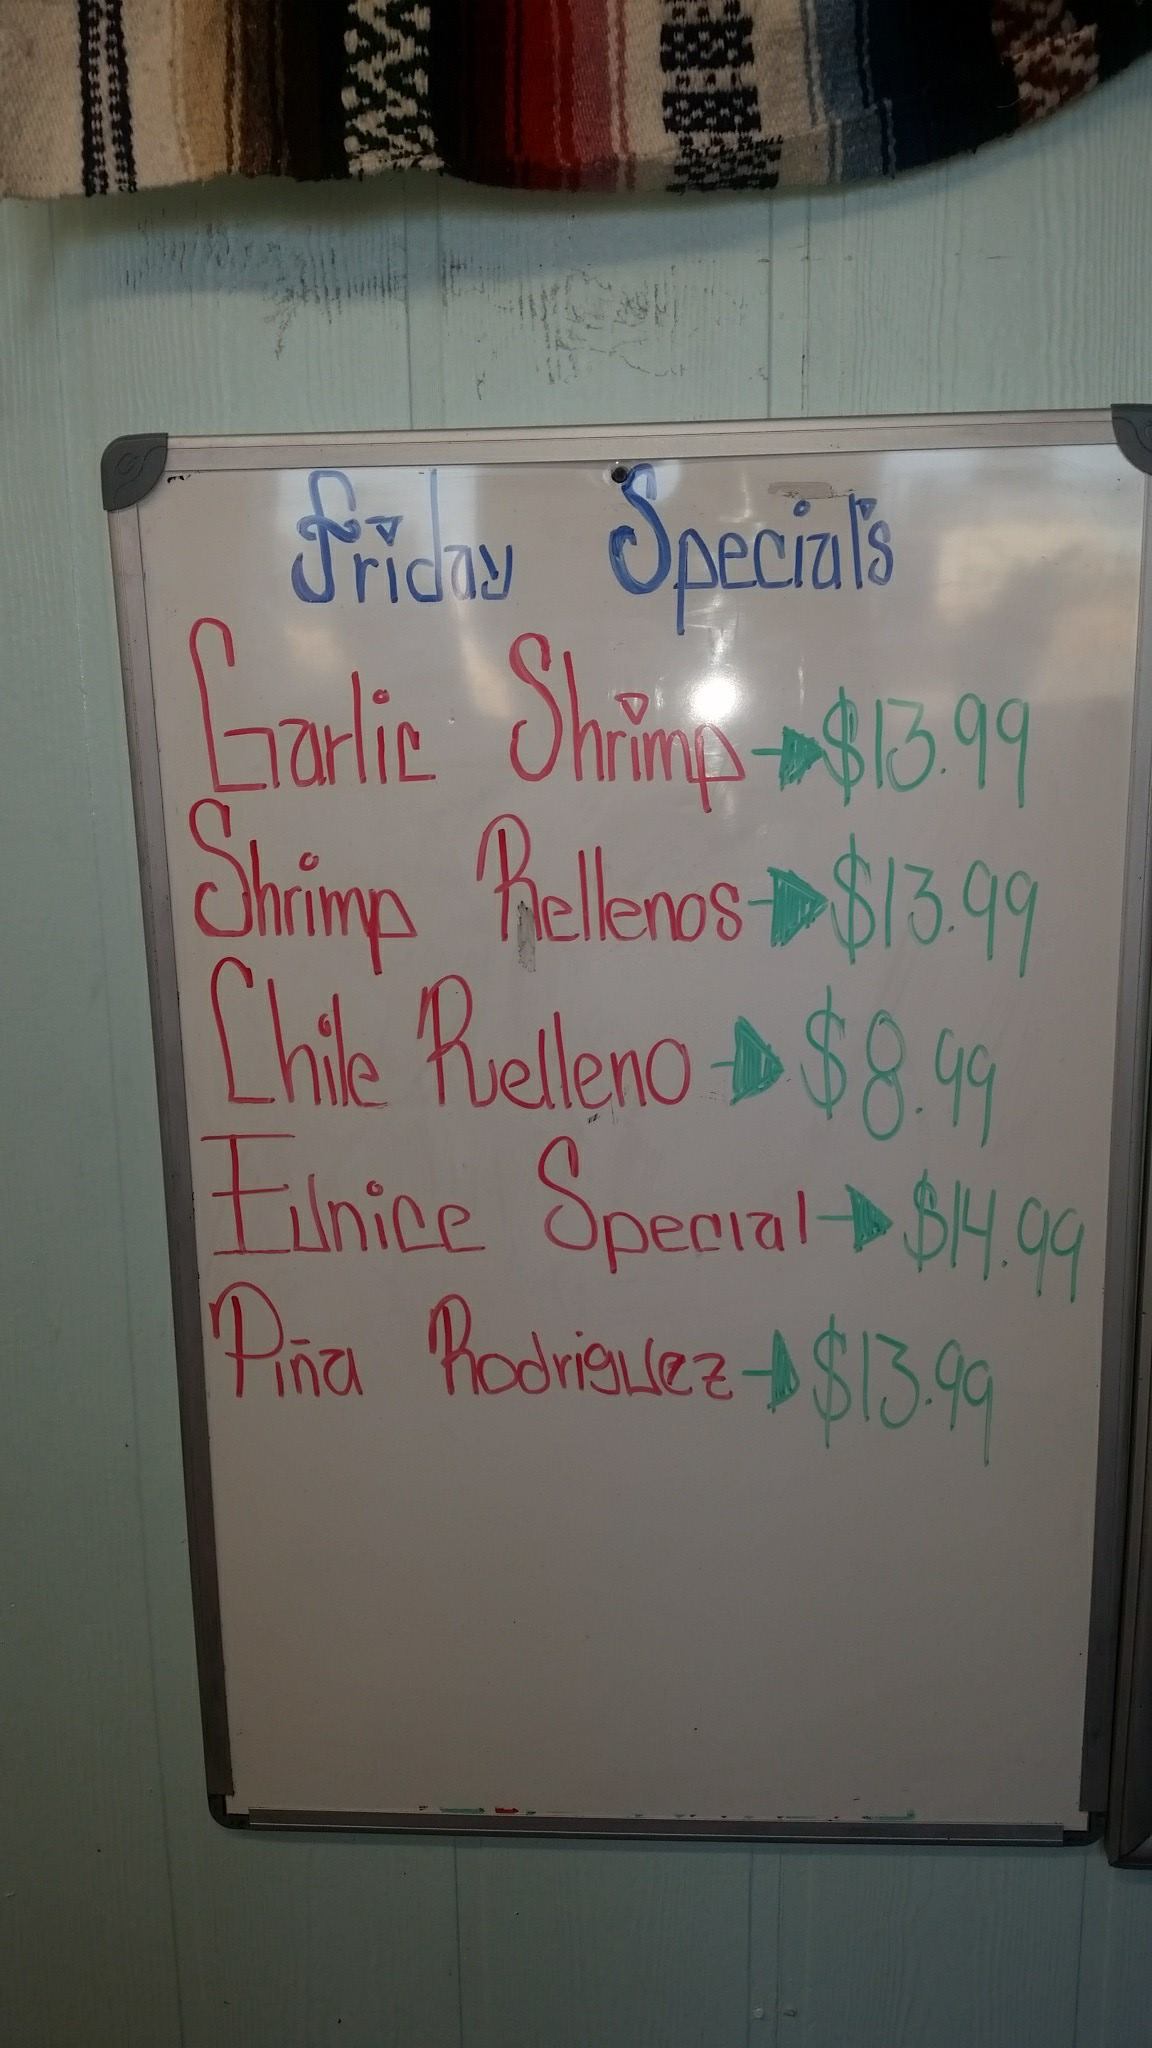 Friday Special's
Garlic Shrimp → $13.99
Shrimp Rellenos → $13.99
Chile Relleno → $8.99
Eunice Special → $14.99
Piña Rodriguez → $13.99